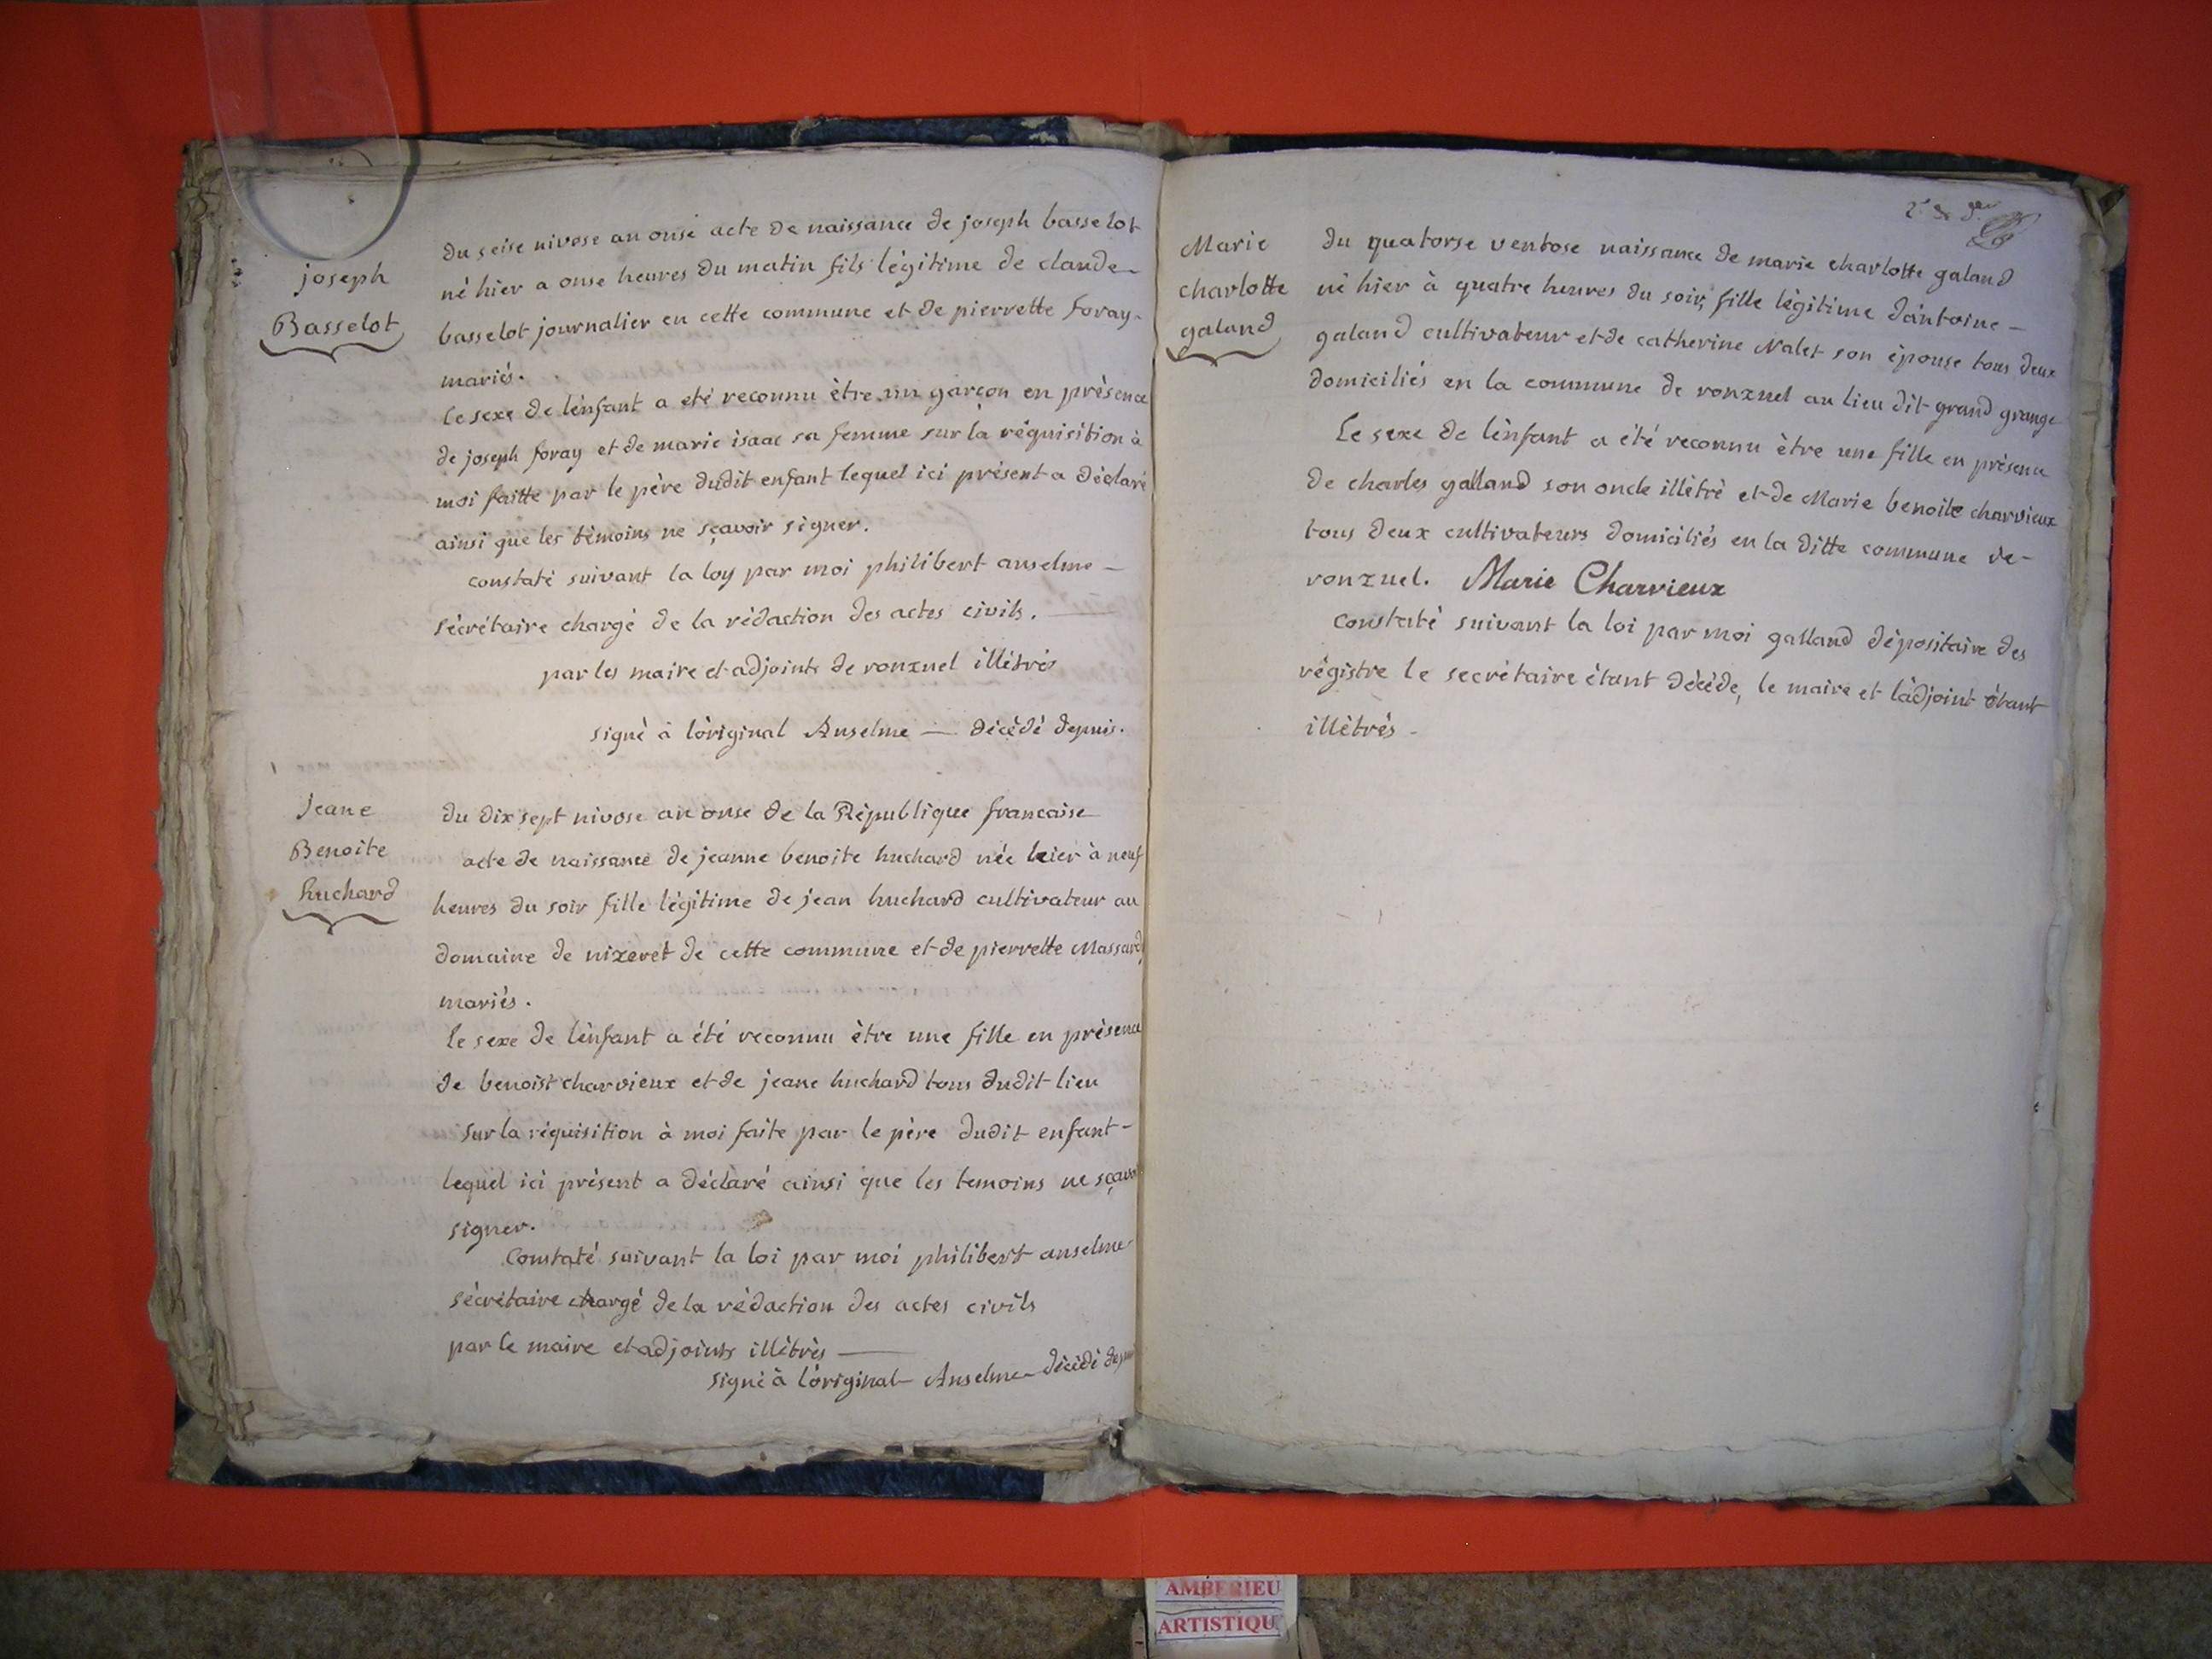 joseph
Basselot
du seise nivose an onse acte de naissance de joseph basselot
né hier a onse heures du matin fils légitime de claude
basselot journalier en cette commune et de pierrette foray
mariés.
le sexe de lènfant a eté reconnu ètre un garçon en présence
de joseph foray et de marie isaac sa femme sur la réquisition à
moi faitte par le père dudit enfant lequel ici présent a déclaré
ainsi que les témoins ne sçavoir signer.
constaté suivant la loy par moi philibert anselme –
sécrétaire chargé de la rédaction des actes civils.
par les maire et adjoints de ronzuel illétrés
signé à lòriginal Anselme — décédé depuis.
Jeane
Benoite
huchard
du dix sept nivose an onse de la République francaise
acte de naissance de jeanne benoite huchard née hier à neuf
heures du soir fille légitime de jean huchard cultivateur au
domaine de nizeret de cette commune et de pierrette Massard
mariés.
le sexe de lènfant a été reconnu ètre une fille en présence
de benoist charvieux et de jeane huchard tous dudit lieu
sur la réquisition à moi faite par le père dudit enfant –
lequel ici présent a déclaré ainsi que les temoins ne sçavoir
signer.
Constaté suivant la loi par moi philibert anselme
sécrétaire chargé de la rédaction des actes civils
par le maire et adjoints illétrés —
signé à lòriginal Anselme décédé depuis
Marie
charlotte
galand
du quatorse ventose naissance de marie charlotte galand
né hier à quatre heures du soir, fille légitime dàntoine –
galand cultivateur et de catherine Nalet son épouse tous deux
domiciliés en la commune de ronzuel au lieu dit grand grange
Le sexe de lènfant a été reconnu ètre une fille en présence
de charles galland son oncle illétré et de Marie benoite charvieux
tous deux cultivateurs domiciliés en la ditte commune de –
ronzuel. Marie Charvieux
Constaté suivant la loi par moi galland dépositaire des
régistre le secrétaire étant décédé, le maire et làdjoint étant
illétrés –
AMBERIEU
ARTISTIQU